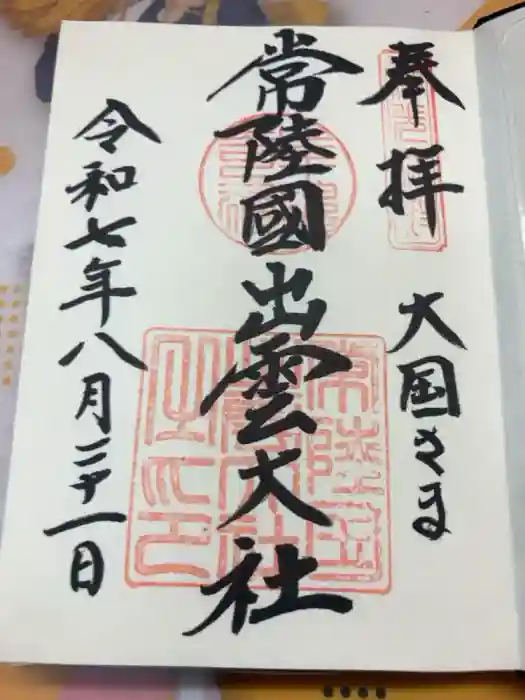 奉拝
大国さま
常陸國出雲大社
令和七年八月三十一日
常陸国
出雲大社
之印